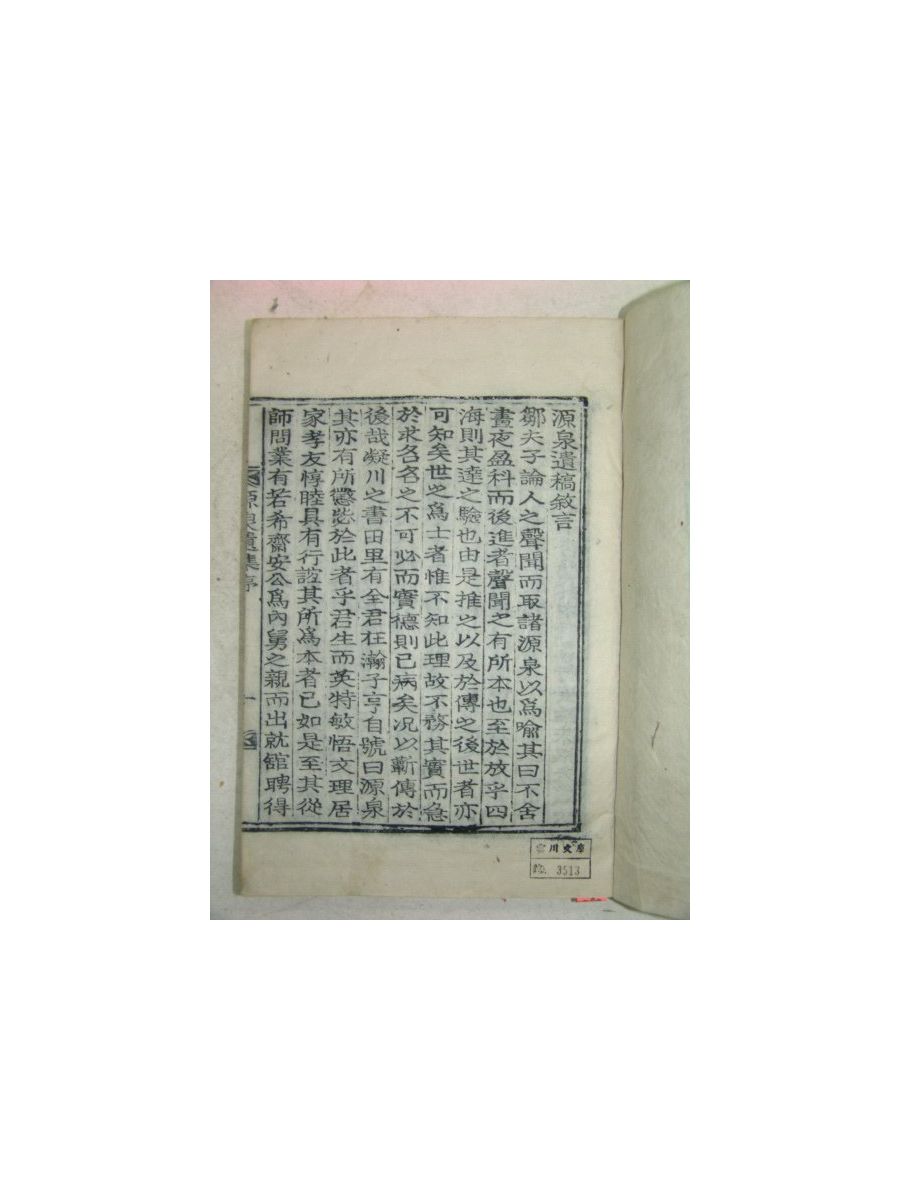 源泉遺稿敘言
鄒夫子論人之聲聞而取諸源泉以爲喩其曰不舍
晝夜盈科而後進者聲聞之有所本也至於放乎四
海則其達之驗也由是推之以及於傳之後世者亦
可知矣世之爲士者惟不知此理故不務其實而急
於求名名之不可必而實德則已病矣况以蘄傳於
後哉凝川之書田里有全君在瀚子亨自號曰源泉
其亦有所懲毖於此者乎君生而英特敏悟文理居
家孝友惇睦具有行誼其所爲本者已如是至其從
師問業有若希齋安公爲內舅之親而出就舘聘得
源泉遺集序
一
川文庫
No. 3513